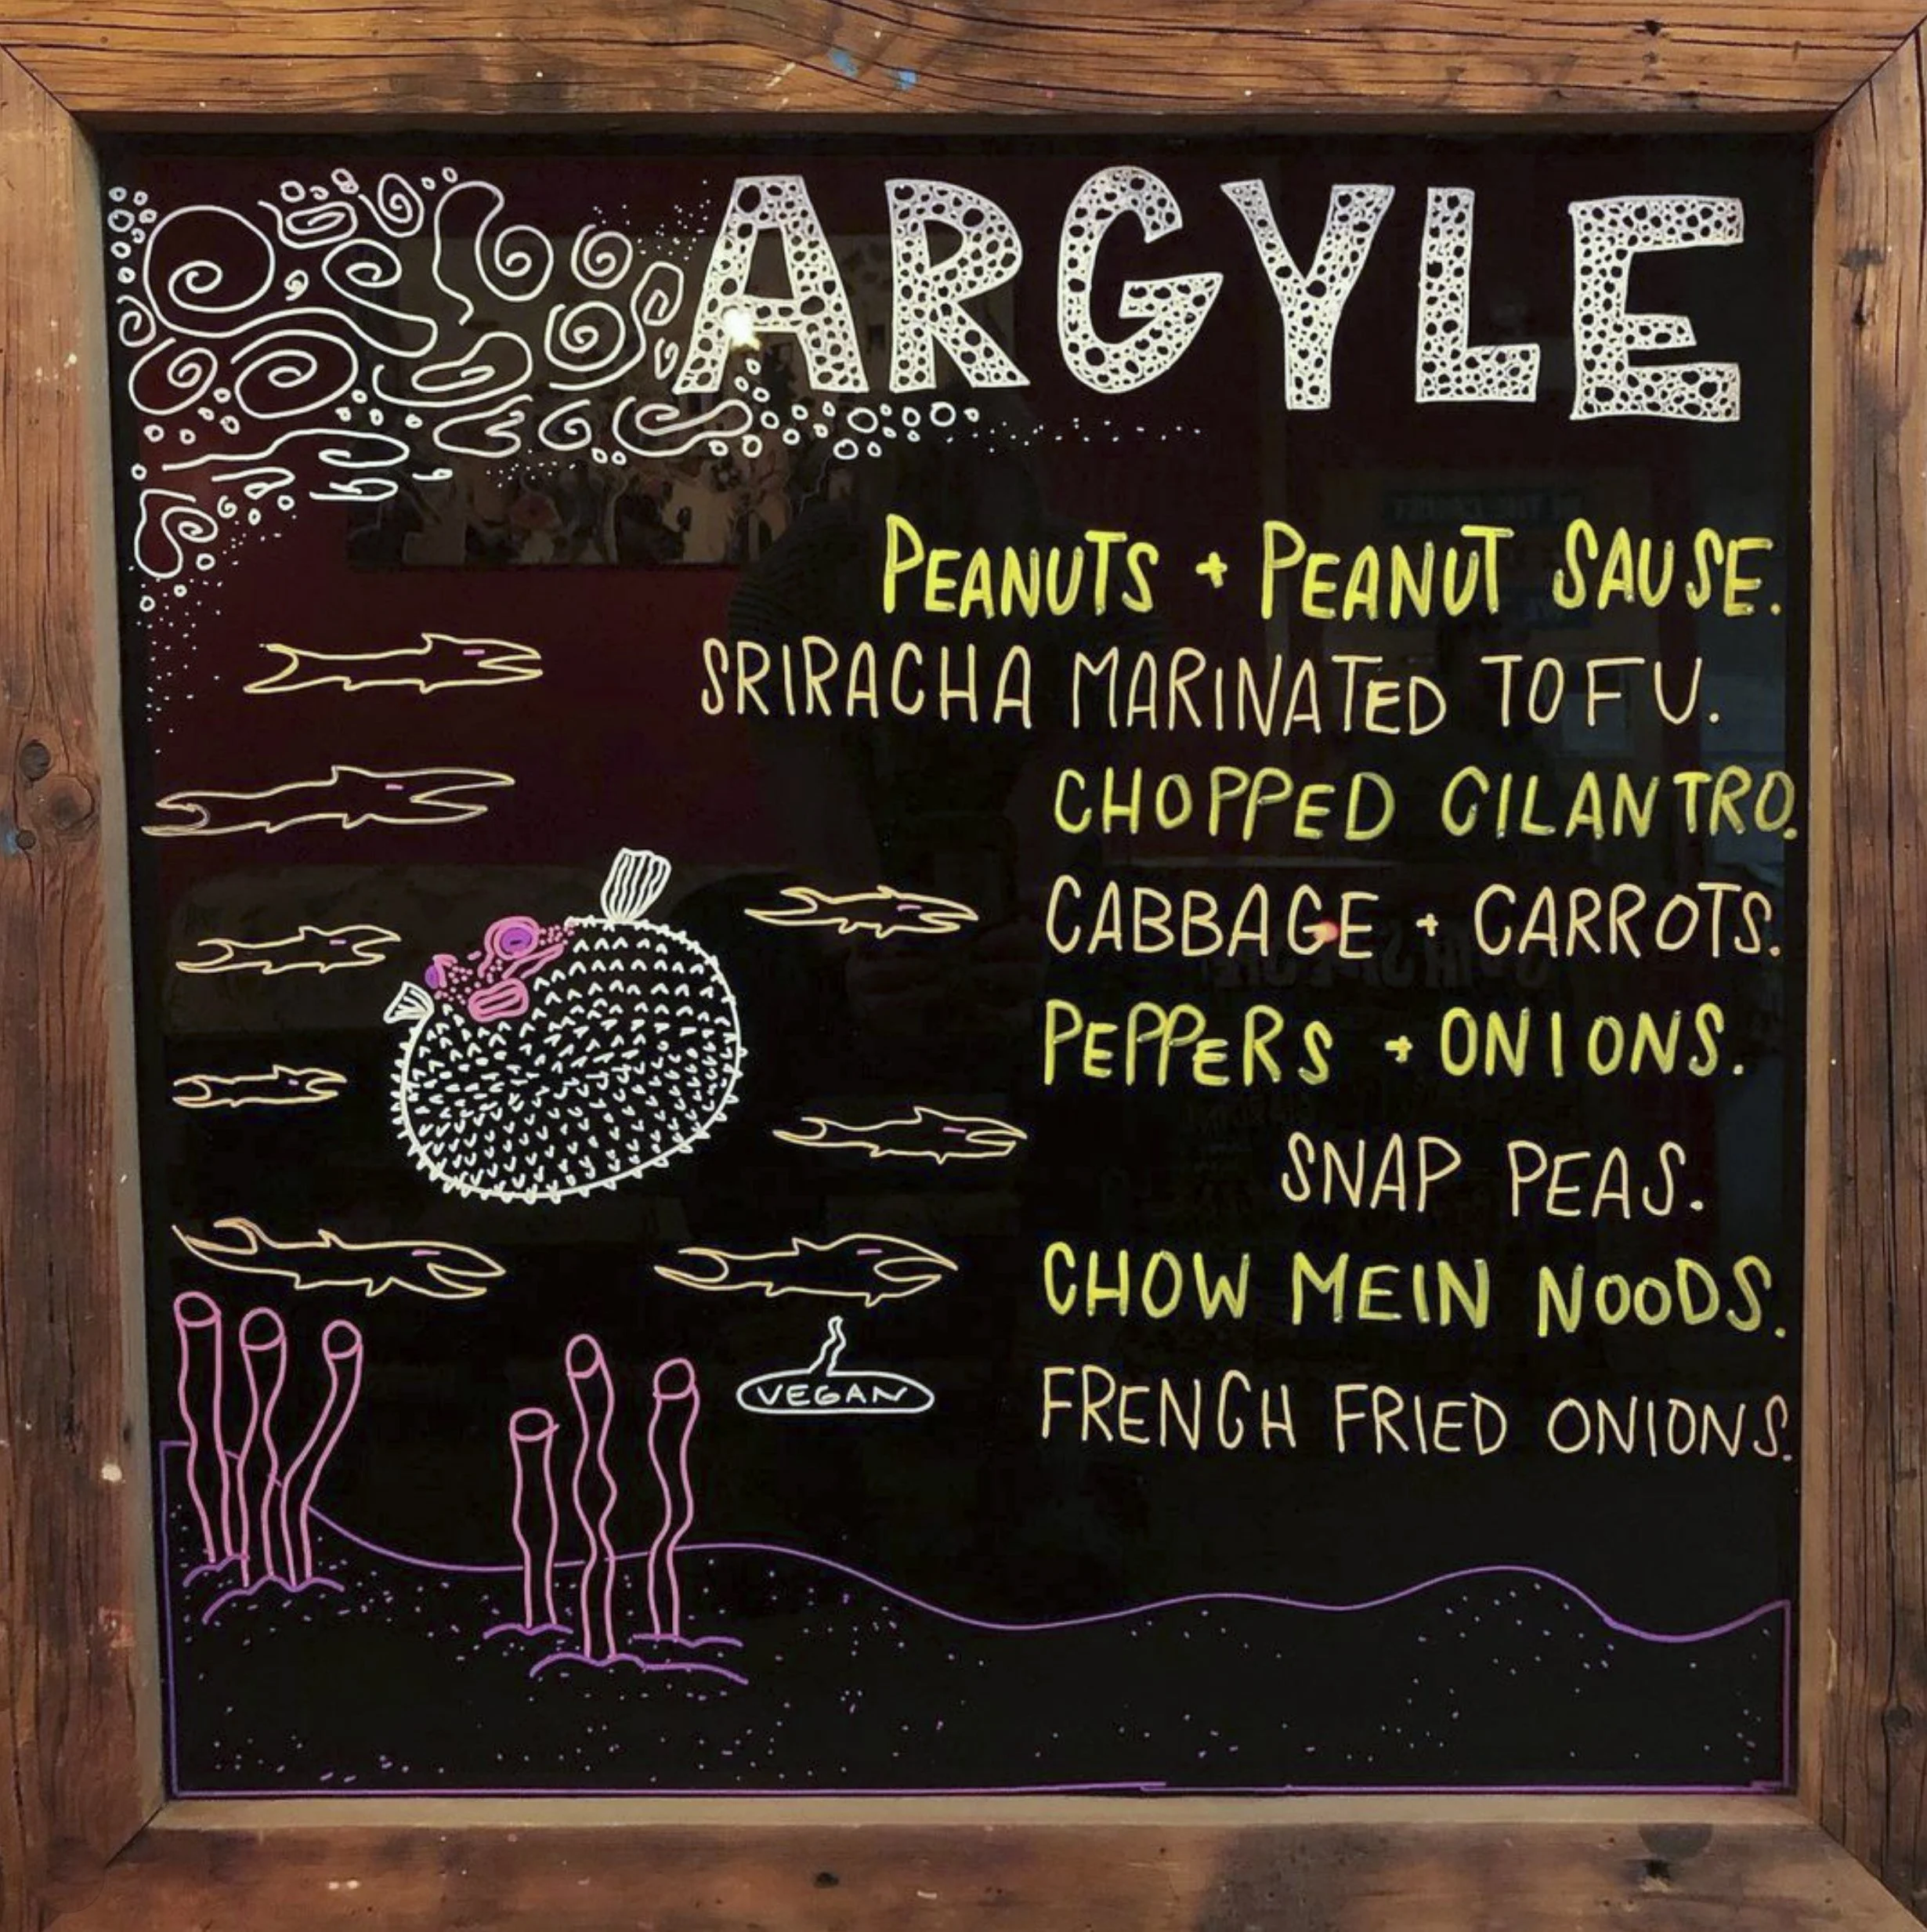 ARGYLE
PEANUTS + PEANUT SAUSE.
SRIRACHA MARINATED TOFU.
CHOPPED CILANTRO.
CABBAGE + CARROTS.
PEPPERS + ONIONS.
SNAP PEAS.
CHOW MEIN NOODS.
FRENCH FRIED ONIONS.
VEGAN